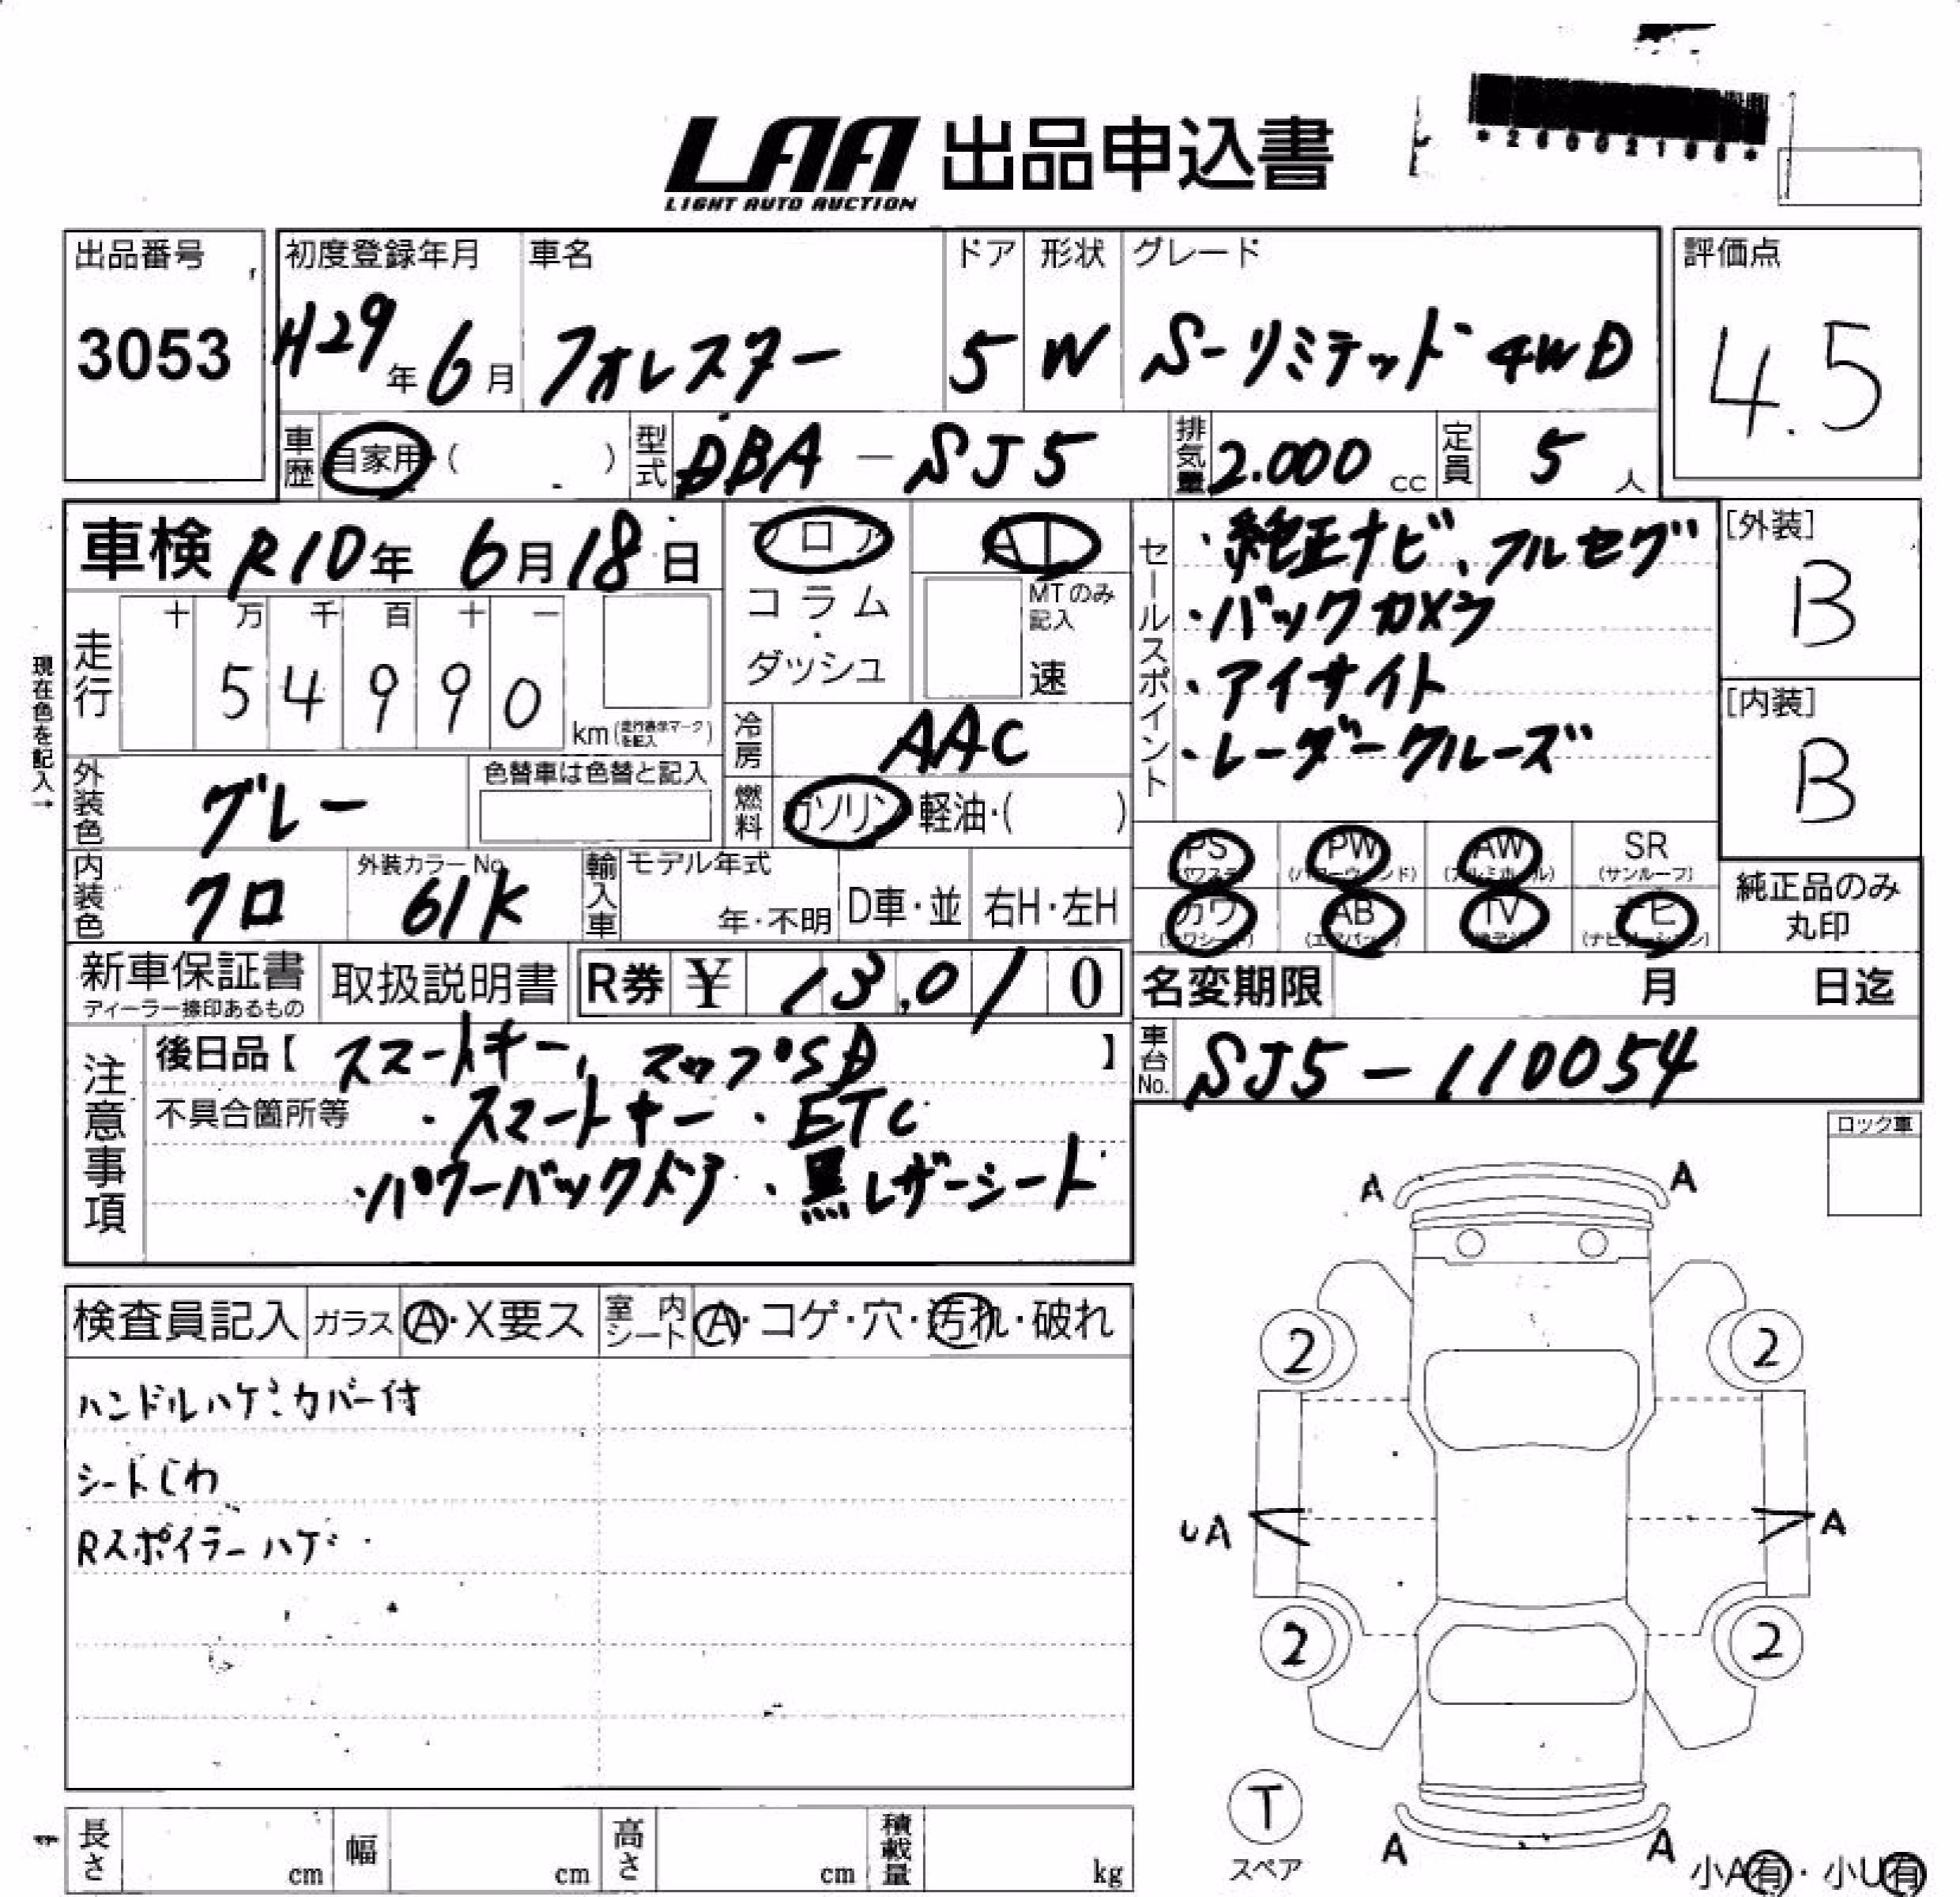 LAA 出品申込書
LIGHT AUTO AUCTION
出品番号
3053
初度登録年月
H29年6月
車名
フォレスター
ドア
5
形状
W
グレード
S-リミテッド 4WD
評価点
4.5
車歴
自家用・( )
型式
DBA-SJ5
排気量
2.000 cc
定員
5人
車検 R10年 6月18日
フロア
コラム
・
ダッシュ
AT
MTのみ記入
速
セールスポイント
・純正ナビ、フルセグ
・バックカメラ
・アイサイト
・レーダークルーズ
[外装]
B
[内装]
B
現在色を記入→
走行
十 万 千 百 十 一
5 4 9 9 0
km(走行表示マークを記入)
冷房
AAC
外装色
グレー
色替車は色替と記入
燃料
ガソリン・軽油・( )
内装色
クロ
外装カラーNo.
61K
輸入車
モデル年式
年・不明
D車・並
右H・左H
PS
PW
AW
SR
(サンルーフ)
カワ
AB
TV
ナビ
純正品のみ
丸印
新車保証書
ディーラー捺印あるもの
取扱説明書
R券 ¥ 13,010
名変期限 月 日迄
注意事項
後日品【スマートキー、マップSD】
不具合箇所等 ・スマートキー ・ETC
・パワーバックドア ・黒レザーシート
車台No.
SJ5-110054
ロック車
検査員記入
ガラス
A・X要ス
室内シート
A・コゲ・穴・汚れ・破れ
ハンドルハゲ:カバー付
シートしわ
Rスポイラーハゲ
A A
2 2
UA A
2 2
T
スペア
A A
小A有・小U有
長さ cm
幅 cm
高さ cm
積載量 kg